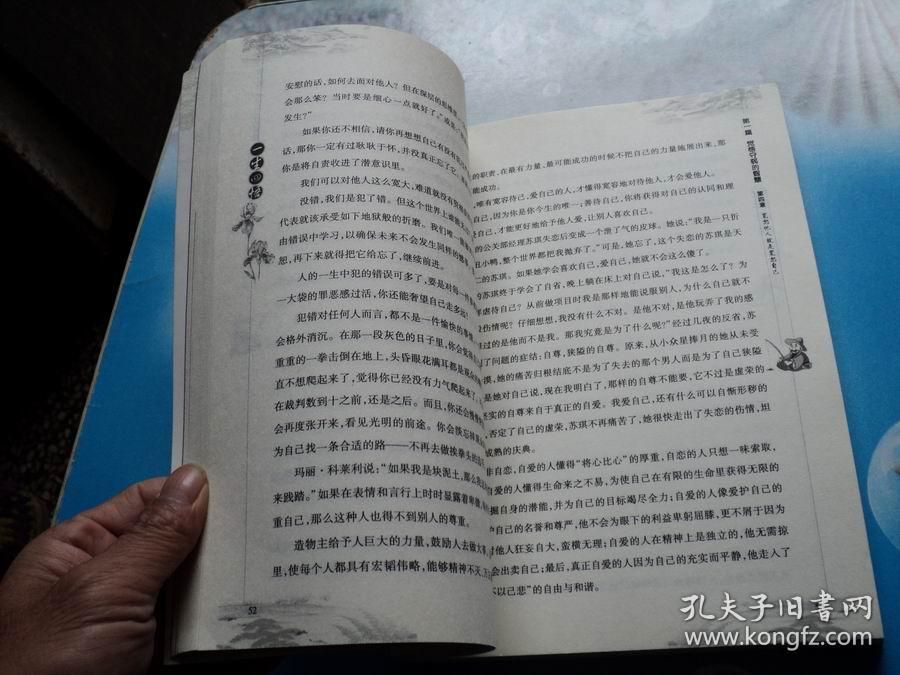 安慰的话,如何去面对他人?但在深层的思维
会那么笨?当时要是细心一点就好了。”或是:“
发生?”
如果你还不相信,请你再想想自己有没有
话,那你一定有过耿耿于怀,并没真正忘了它。
你是将自责收进了潜意识里。
我们可以对他人这么宽大,难道就没有
没错,我们是犯了错。但这个世界上谁能
代表就该承受如下地狱般的折磨。我们唯一能
由错误中学习,以确保未来不会发生同样的
恕,再下来就得把它给忘了,继续前进。
人的一生中犯的错误可多了,要是对每一件
一大袋的罪恶感过活,你还能奢望自己走多远
犯错对任何人而言,都不是一件愉快的事情,
会格外消沉。在那一段灰色的日子里,你会觉得
重重的一拳击倒在地上,头昏眼花满耳都是
直不想爬起来了,觉得你已经没有力气爬起来了
在裁判数到十之前,还是之后。而且,你还会慢慢
会再度张开来,看见光明的前途。你会淡忘掉
为自己找一条合适的路——不再去做挨拳头的
玛丽·科莱利说:“如果我是块泥土,那么我
来践踏。”如果在表情和言行上时时显露着卑微,
重自己,那么这种人也得不到别人的尊重。
造物主给予人巨大的力量,鼓励人去做大事
里,使每个人都具有宏韬伟略,能够精神不灭、万
52
一生回悟
第一篇
第四章 宽恕他人就是宽恕自己
的职责,在最有力量、最可能成功的时候不把自己的力量施展出来,那
能成功。
唯有宽容待己,爱自己的人,才懂得宽容地对待他人,才会爱他人。
自己,因为你是你今生的唯一;善待自己,你将获得对自己的认同和理
自己,才能更好地给予他人爱,让别人喜欢自己。
的公关部经理苏琪失恋后变成一个泄了气的皮球。她说:“我是一只折
丑小鸭,整个世界都把我抛弃了。”可是,她忘了,这个失恋的苏琪是天
二的苏琪。如果她学会喜欢自己,爱自己,她就不会这么傻了。
的苏琪终于学会了自省,晚上躺在床上对自己说,“我这是怎么了?为
样虐待自己?从前做项目时我是那样地能说服别人,为什么自己就不
段伤情呢?仔细想想,我没有什么不对。是他不对,是他玩弄了我的感
过的是他而不是我。那我究竟是为了什么呢?”经过几夜的反省,苏
了问题的症结:自尊,狭隘的自尊。原来,从小众星捧月的她从未受
漠,她的痛苦归根结底不是为了失去的那个男人而是为了自己狭隘
是她对自己说,现在我明白了,那样的自尊不能要,它不过是虚荣的
真实的自尊来自于真正的自爱。我爱自己,还有什么可以自惭形秽的
,否定了自己的虚荣,苏琪不再痛苦了,她很快走出了失恋的伤情,坦
成熟的庆典。
非自恋,自爱的人懂得“将心比心”的厚重,自恋的人只想一味索取,
自爱的人懂得生命来之不易,为使自己在有限的生命里获得无限的
掘自身的潜能,并为自己的目标竭尽全力;自爱的人像爱护自己的
护自己的名誉和尊严,他不会为眼下的利益卑躬屈膝,更不屑于因为
对他人狂妄自大,蛮横无理;自爱的人在精神上是独立的,他无需掠
会出卖自己;最后,真正自爱的人因为自己的充实而平静,他走入了
不以己悲”的自由与和谐。
孔夫子旧书网
www.kongfz.com